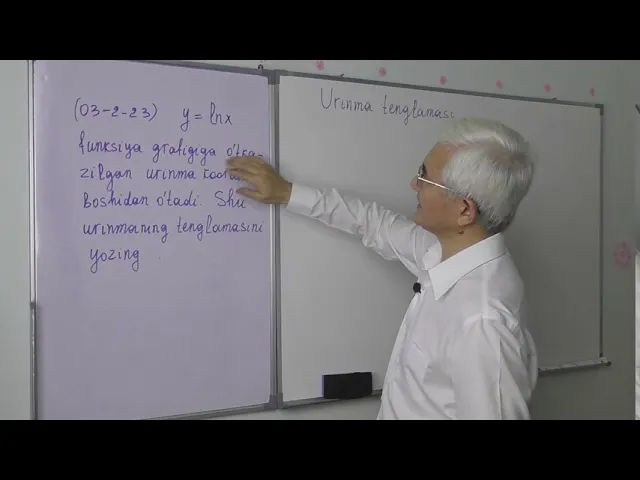 (03-2-23) y = lnx
funksiya grafigiga o'tka-
zilgan urinma
boshidan o'tadi. Shu
urinmaning tenglamasini
yozing
Urinma tenglamasi